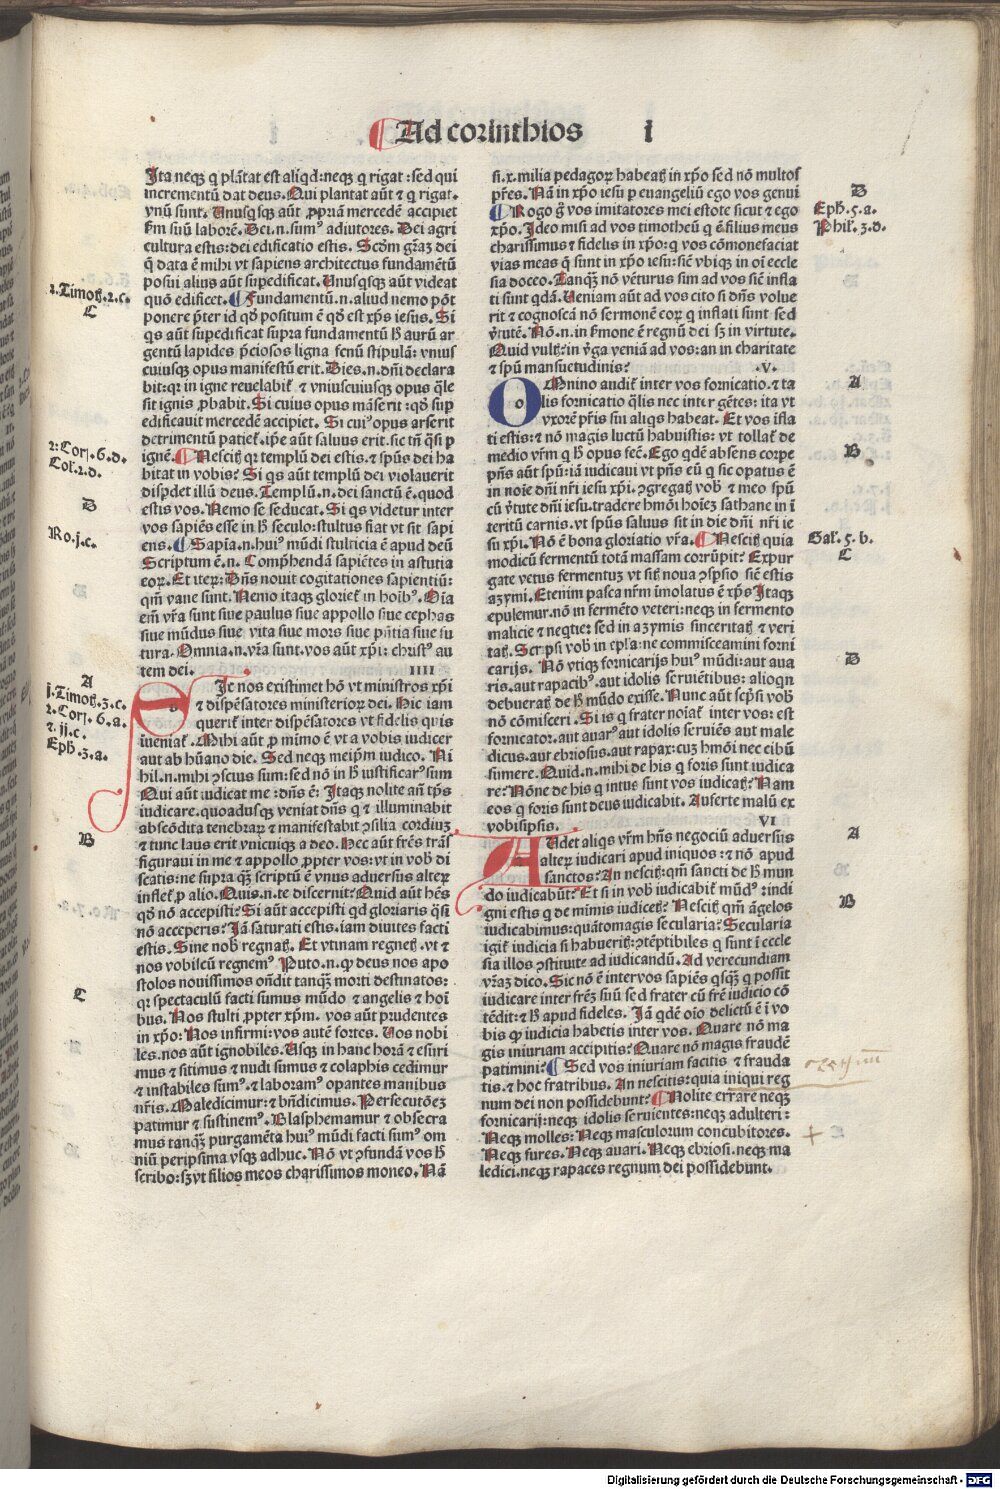 Ad corinthios i
Ita neqꝫ q plãtat est aliqd: neqꝫ q rigat: sed qui
incrementũ dat deus. Qui plantat aũt ⁊ q rigat.
vnũ sunt. Unusqsqꝫ aũt ꝓpriã mercedẽ accipiet
ẜm suũ laborẽ. Dei.n.sumꝰ adiutores. Dei agri
cultura estis: dei edificatio estis. Scḋm gr̃az dei
q̃ data ẽ mihi vt sapiens architectus fundamẽtũ
posui alius aũt suꝑedificat. Unusqsqꝫ aũt videat
quõ edificet. Fundamentũ.n. aliud nemo põt
ponere p̃ter id qḋ positum ẽ qḋ est xp̃s iesus. Si
qs aũt suꝑedificat supra fundamentũ ḣ aurũ ar
gentũ lapides p̃ciosos ligna fenũ stipulã: vnius
cuiusqꝫ opus manifestũ erit. Dies.n. dñi declara
bit: qꝛ in igne reuelabit̃ ⁊ vniuscuiusqꝫ opus q̃le
sit ignis ꝓbabit. Si cuius opus mãserit: qḋ suꝑ
edificauit mercedẽ accipiet. Si cuiꝰ opus arserit
detrimentũ patiet̃. ip̃e aũt saluus erit. sic tñ q̃si ꝑ
ignẽ. Nescitꝭ qꝛ templũ dei estis. ⁊ spũs dei ha
bitat in vobis? Si qs aũt templũ dei violauerit
disp̱det illũ deus. Templũ.n. dei sanctũ ẽ. quod
estis vos. Nemo se seducat. Si qs videtur inter
vos sapiẽs esse in ḣ seculo: stultus fiat vt sit sapi
ens. Sapĩa.n. huiꝰ mũdi stulticia ẽ apud deũ
Scriptum ẽ.n. Comp̃hendã sapiẽtes in astutia
eoꝝ. Et iteꝝ: Dñs nouit cogitationes sapientiũ:
qm̃ vane sunt. Nemo itaqꝫ gloriet̃ in hoĩbꝰ. Oĩa
em̃ vr̃a sunt siue paulus siue appollo siue cephas
siue mũdus siue vita siue mors siue p̃ñtia siue fu
tura. Omnia.n. vr̃a sunt. vos aũt xp̃i: christꝰ au
tem dei. IIII
Sic nos existimet hõ vt ministros xp̃i
⁊ dispẽsatores ministerioꝝ dei. Hic iam
querit̃ inter dispẽsatores vt fidelis quis
iueniat̃. Mihi aũt ꝓ mimo ẽ vt a vobis iudicer
aut ab hũano die. Sed neqꝫ meip̃m iudico. Ni
hil.n. mihi ꝯscius sum: sed nõ in ḣ iustificatꝰ sum
Qui aũt iudicat me: dñs ẽ: Itaqꝫ nolite añ tp̃s
iudicare. quoadusqꝫ veniat dñs q ⁊ illuminabit
abscõdita tenebraꝝ ⁊ manifestabit ꝯsilia cordiuꝫ
⁊ tunc laus erit vnicuiqꝫ a deo. Hec aũt frẽs trãs
figuraui in me ⁊ appollo ꝓpter vos: vt in vob̃ di
scatis: ne supra qꝫ scriptũ ẽ vnus aduersus alteꝝ
inflet̃ ꝓ alio. Quis.n. te discernit? Quid aũt hẽs
qḋ nõ accepisti? Si aũt accepisti qd gloriaris q̃si
nõ acceperis? Iã saturati estis. iam diuites facti
estis. Sine nob̃ regnatꝭ. Et vtinam regnetꝭ. vt ⁊
nos vobiscũ regnemꝰ Puto.n. ꝙ deus nos apo
stolos nouissimos oñdit tanqꝫ̃ morti destinatos:
qꝛ spectaculũ facti sumus mũdo ⁊ angelis ⁊ hoĩ
bus. Nos stulti ꝓpter xp̃m. vos aũt prudentes
in xp̃o: Nos infirmi: vos autẽ fortes. Uos nobi
les. nos aũt ignobiles. Usqꝫ in hanc horã ⁊ esuri
mus ⁊ sitimus ⁊ nudi sumus ⁊ colaphis cedimur
⁊ instabiles sumꝰ. ⁊ laboramꝰ opantes manibus
nr̃is. Maledicimur: ⁊ bñdicimus. Persecutõeꝫ
patimur ⁊ sustinemꝰ. Blasphemamur ⁊ obsecra
mus tanqꝫ̃ purgamẽta huiꝰ mũdi facti sumꝰ om
niũ peripsima vsqꝫ adhuc. Nõ vt ꝯfundã vos ḣ
scribo: sꝫ vt filios meos charissimos moneo. Nã
si.x. milia pedagoꝝ habeatꝭ in xp̃o sed nõ multos
pr̃es. Nã in xp̃o iesu ꝑ euangeliũ ego vos genui
Rogo g̊ vos imitatores mei estote sicut ⁊ ego
xp̃o. Ideo misi ad vos timotheũ q ẽ filius meus
charissimus ⁊ fidelis in xp̃o: q vos cõmonefaciat
vias meas q̃ sunt in xp̃o iesu: sic̃ vbiqꝫ in oĩ eccle
sia doceo. Tanqꝫ̃ nõ vẽturus sim ad vos sic̃ infla
ti sunt qdã. Ueniam aũt ad vos cito si dñs volue
rit ⁊ cognoscã nõ sermonẽ eoꝝ q inflati sunt sed
v̓tutẽ. Nõ.n. in ẜmone ẽ regnũ dei sꝫ in virtute.
Quid vultꝭ? in v̓ga veniã ad vos: an in charitate
⁊ spũ mansuetudinis? .V.
OMnino audit̃ inter vos fornicatio. ⁊ ta
lis fornicatio q̃lis nec inter gẽtes: ita vt
vxorẽ pr̃is sui aliqs habeat. Et vos ifla
ti estis: ⁊ nõ magis luctũ habuistis: vt tollat̃ de
medio vr̃m q ḣ opus fec̃. Ego qdẽ absens corꝑe
pñs aũt spũ: iã iudicaui vt pñs eũ q sic opatus ẽ
in noĩe dñi nr̃i iesu xp̃i. ꝯgregatꝭ vob̃ ⁊ meo spũ
cũ v̓tute dñi iesu. tradere hm̃õi hoĩeꝫ sathane in ĩ
teritũ carnis. vt spũs saluus sit in die dñi nr̃i ie
su xp̃i. Nõ ẽ bona gloriatio vr̃a. Nescitꝭ quia
modicũ fermentũ totã massam corrũpit? Expur
gate vetus fermentuꝫ vt sitꝭ noua ꝯspsio sic̃ estis
aꝫymi. Etenim pasca nr̃m ĩmolatus ẽ xp̃s Itaqꝫ
epulemur. nõ in fermẽto veteri: neqꝫ in fermento
malicie ⁊ neqtie: sed in aꝫymis sinceritatꝭ ⁊ veri
tatꝭ. Scrpsi vob̃ in epl̃a: ne commisceamini forni
carijs. Nõ vtiqꝫ fornicarijs huiꝰ mũdi: aut aua
ris. aut rapacibꝰ. aut idolis seruiẽtibus: alioqn
debueratꝭ de ḣ mũdo exisse. Nunc aũt scp̃si vob̃
nõ cõmisceri. Si is q frater noĩat̃ inter vos: est
fornicator. aut auarꝰ aut idolis seruiẽs aut male
dicus. aut ebriosus. aut rapax: cuꝫ hm̃õi nec cibũ
sumere. Quid.n. mihi de his q foris sunt iudica
re? Nõne de his q intus sunt vos iudicatꝭ? Nam
eos q foris sunt deus iudicabit. Auferte malũ ex
vobisipsis. VI
AUdet aliqs vr̃m hñs negociũ aduersus
alteꝝ iudicari apud iniquos: ⁊ nõ apud
sanctos? An nescitꝭ: qm̃ sancti de ḣ mun
do iudicabũt? Et si in vob̃ iudicabit̃ mũdꝰ: indi
gni estis q de mimis iudicetꝭ? Nescitꝭ qm̃ ãgelos
iudicabimus: quãtomagis secularia? Secularia
igit̃ iudicia si habueritꝭ: ꝯtẽptibiles q sunt ĩ eccle
sia illos ꝯstituite ad iudicandũ. Ad verecundiam
vr̃aꝫ dico. Sic nõ ẽ inter vos sapiẽs qsqꝫ̃ q possit
iudicare inter frẽꝫ suũ sed frater cũ frẽ iudicio cõ
tẽdit: ⁊ ḣ apud fideles. Iã qdẽ oĩo delictũ ẽ ĩ vo
bis ꝙ iudicia habetis inter vos. Quare nõ ma
gis iniuriam accipitis? Quare nõ magis fraudẽ
patimini? Sed vos iniuriam facitis ⁊ frauda
tis. ⁊ hoc fratribus. An nescitis: quia iniqui reg
num dei non possidebunt? Nolite errare neqꝫ
fornicarij: neqꝫ idolis seruientes: neqꝫ adulteri:
Neqꝫ molles: Neqꝫ masculorum concubitores.
Neqꝫ fures. Neqꝫ auari. Neqꝫ ebriosi. neqꝫ ma
ledici. neqꝫ rapaces regnum dei possidebunt.
2.Timotꝭ.2.c.
C
2.Cor.6.d.
Col.2.d.
D
Ro.j.c.
A
j.Timotꝭ.3.c.
2.Cor.6.a.
⁊ ij.c.
Eph̃.3.a.
B
C
D
Eph̃.5.a.
Phil̃.3.d.
A
B
Gal̃.5.b.
C
D
A
B
Digitalisierung gefördert durch die Deutsche Forschungsgemeinschaft - DFG